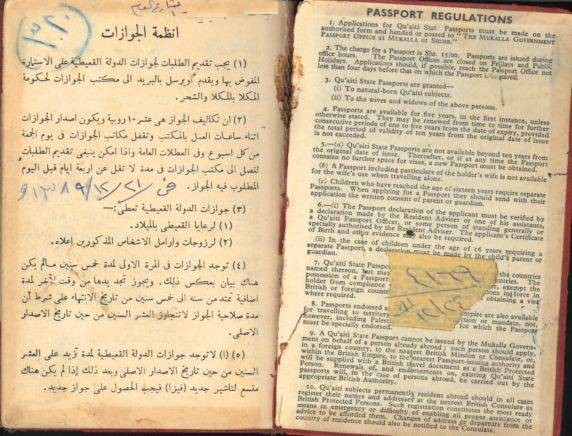 انظمة الجوازات
(١) يجب تقديم الطلبات لجوازات الدولة القعيطية على الاستمارة
المفوض بها ويقدم أو يرسل بالبريد الى مكتب الجوازات لحكومة
المكلا بالمكلا والشحر.
(٢) ان تكاليف الجواز هى عشر ١٠ روبية ويكون اصدار الجوازات
اثناء ساعات العمل بالمكتب وتقفل مكاتب الجوازات فى يوم الجمعة
من كل اسبوع وفى العطلات العامة واذا امكن ينبغى تقديم الطلبات
لتصل الى مكتب الجوازات فى مدة لا تقل عن اربعة ايام قبل اليوم
المطلوب فيه الجواز.
(٣) جوازات الدولة القعيطية تعطى:
(١) لرعايا القعيطى بالميلاد.
(٢) لزوجات وارامل الاشخاص المذكورين إعلاه.
(٤) توجد الجوازات فى المرة الاولى لمدة خمس سنين مالم يكن
هناك بيان بعكس ذلك. ويجوز تجديدها من وقت لآخر لمدة
اضافية تمتد من سنه الى خمس سنين من تاريخ الانتهاء على شرط ان
مدة صلاحية الجواز لاتتجاوز العشر السنين من حين تاريخ الاصدار
الاصلى.
(٥) (ا) لاتوجد جوازات الدولة القعيطية لمدة تزيد على العشر
السنين من حين تاريخ الاصدار الاصلى وبعد ذلك إذا لم يكن هناك
متسع لتاشير جديد (فيزا) فيجب الحصول على جواز جديد.
PASSPORT REGULATIONS
1. Applications for Qu'aiti Stat Passports must be made on the
authorised form and handed or posted to "THE MUKALLA GOVERNMENT
PASSPORT OFFICE AT MUKALLA OR SHEHR."
2. The charge for a Passport is Shs. 15/00. Passports are issued during
office hours. The Passport Offices are closed on Fridays and Public
Holidays. Applications should, if possible, reach the Passport Office not
less than four days before that on which the Passport is required.
3. Qu'aiti State Passports are granted—
(i) To natural-born Qu'aiti subjects.
(ii) To the wives and widows of the above persons.
4. Passports are available for five years, in the first instance, unless
otherwise stated. They may be renewed from time to time for further
consecutive periods of one to five years from the date of expiry, provided
the total period of validity of ten years from the original date of issue
is not exceeded.
5.—(a) Qu'aiti State Passports are not available beyond ten years from
the original date of issue. Thereafter, or if at any time the Passport
contains no further space for visas, a new Passport must be obtained.
(b) A Passport including particulars of the holder's wife is not available
for the wife's use when travelling alone.
(c) Children who have reached the age of sixteen years require separate
Passports. When applying for a Passport they should send with their
application the written consent of parent or guardian.
6.—(i) The Passport declaration of the applicant must be verified by
a declaration made by the Resident Adviser or one of his assistants,
a Qu'aiti Passport Officer, or some person of standing generally or
specially authorised by the Resident Adviser. The applicant's Certificate
of Birth and other evidence may also be required.
(ii) In the case of children under the age of 16 years requiring a
separate Passport, a declaration must be made by the child's parent or
guardian.
7. Qu'aiti State Passpo the countries
named thereon, but may
holder from compliance
British or foreign count in force in
where required. obtaining a visa
8. Passports endorsed a mpire are also available
for travelling to territories
however, including Palest or mandate, not,
must be specially endorsed. for which the Passport
9. A Qu'aiti State Passport cannot be issued by the Mukalla Govern-
ment on behalf of a person already abroad; such person should apply,
in a foreign country, to the nearest British Mission or Consulate, or
within the British Empire, to the nearest Passport-issuing authority and
will be supplied with a British travel document as a British Protected
Person. Renewals of, and endorsements on, existing Qu'aiti State
Passports will, in the case of persons abroad, be carried out by the
appropriate British Authority.
10. Qu'aiti subjects permanently resident abroad should in all cases
register their names and addresses at the nearest British Consulate as
British Protected Persons. Such registration constitutes the most ready
means in emergency or difficulty of enabling all proper assistance or
advice to be afforded them. Changes of address or departure from the
country of residence should also be notified to the Consulate.